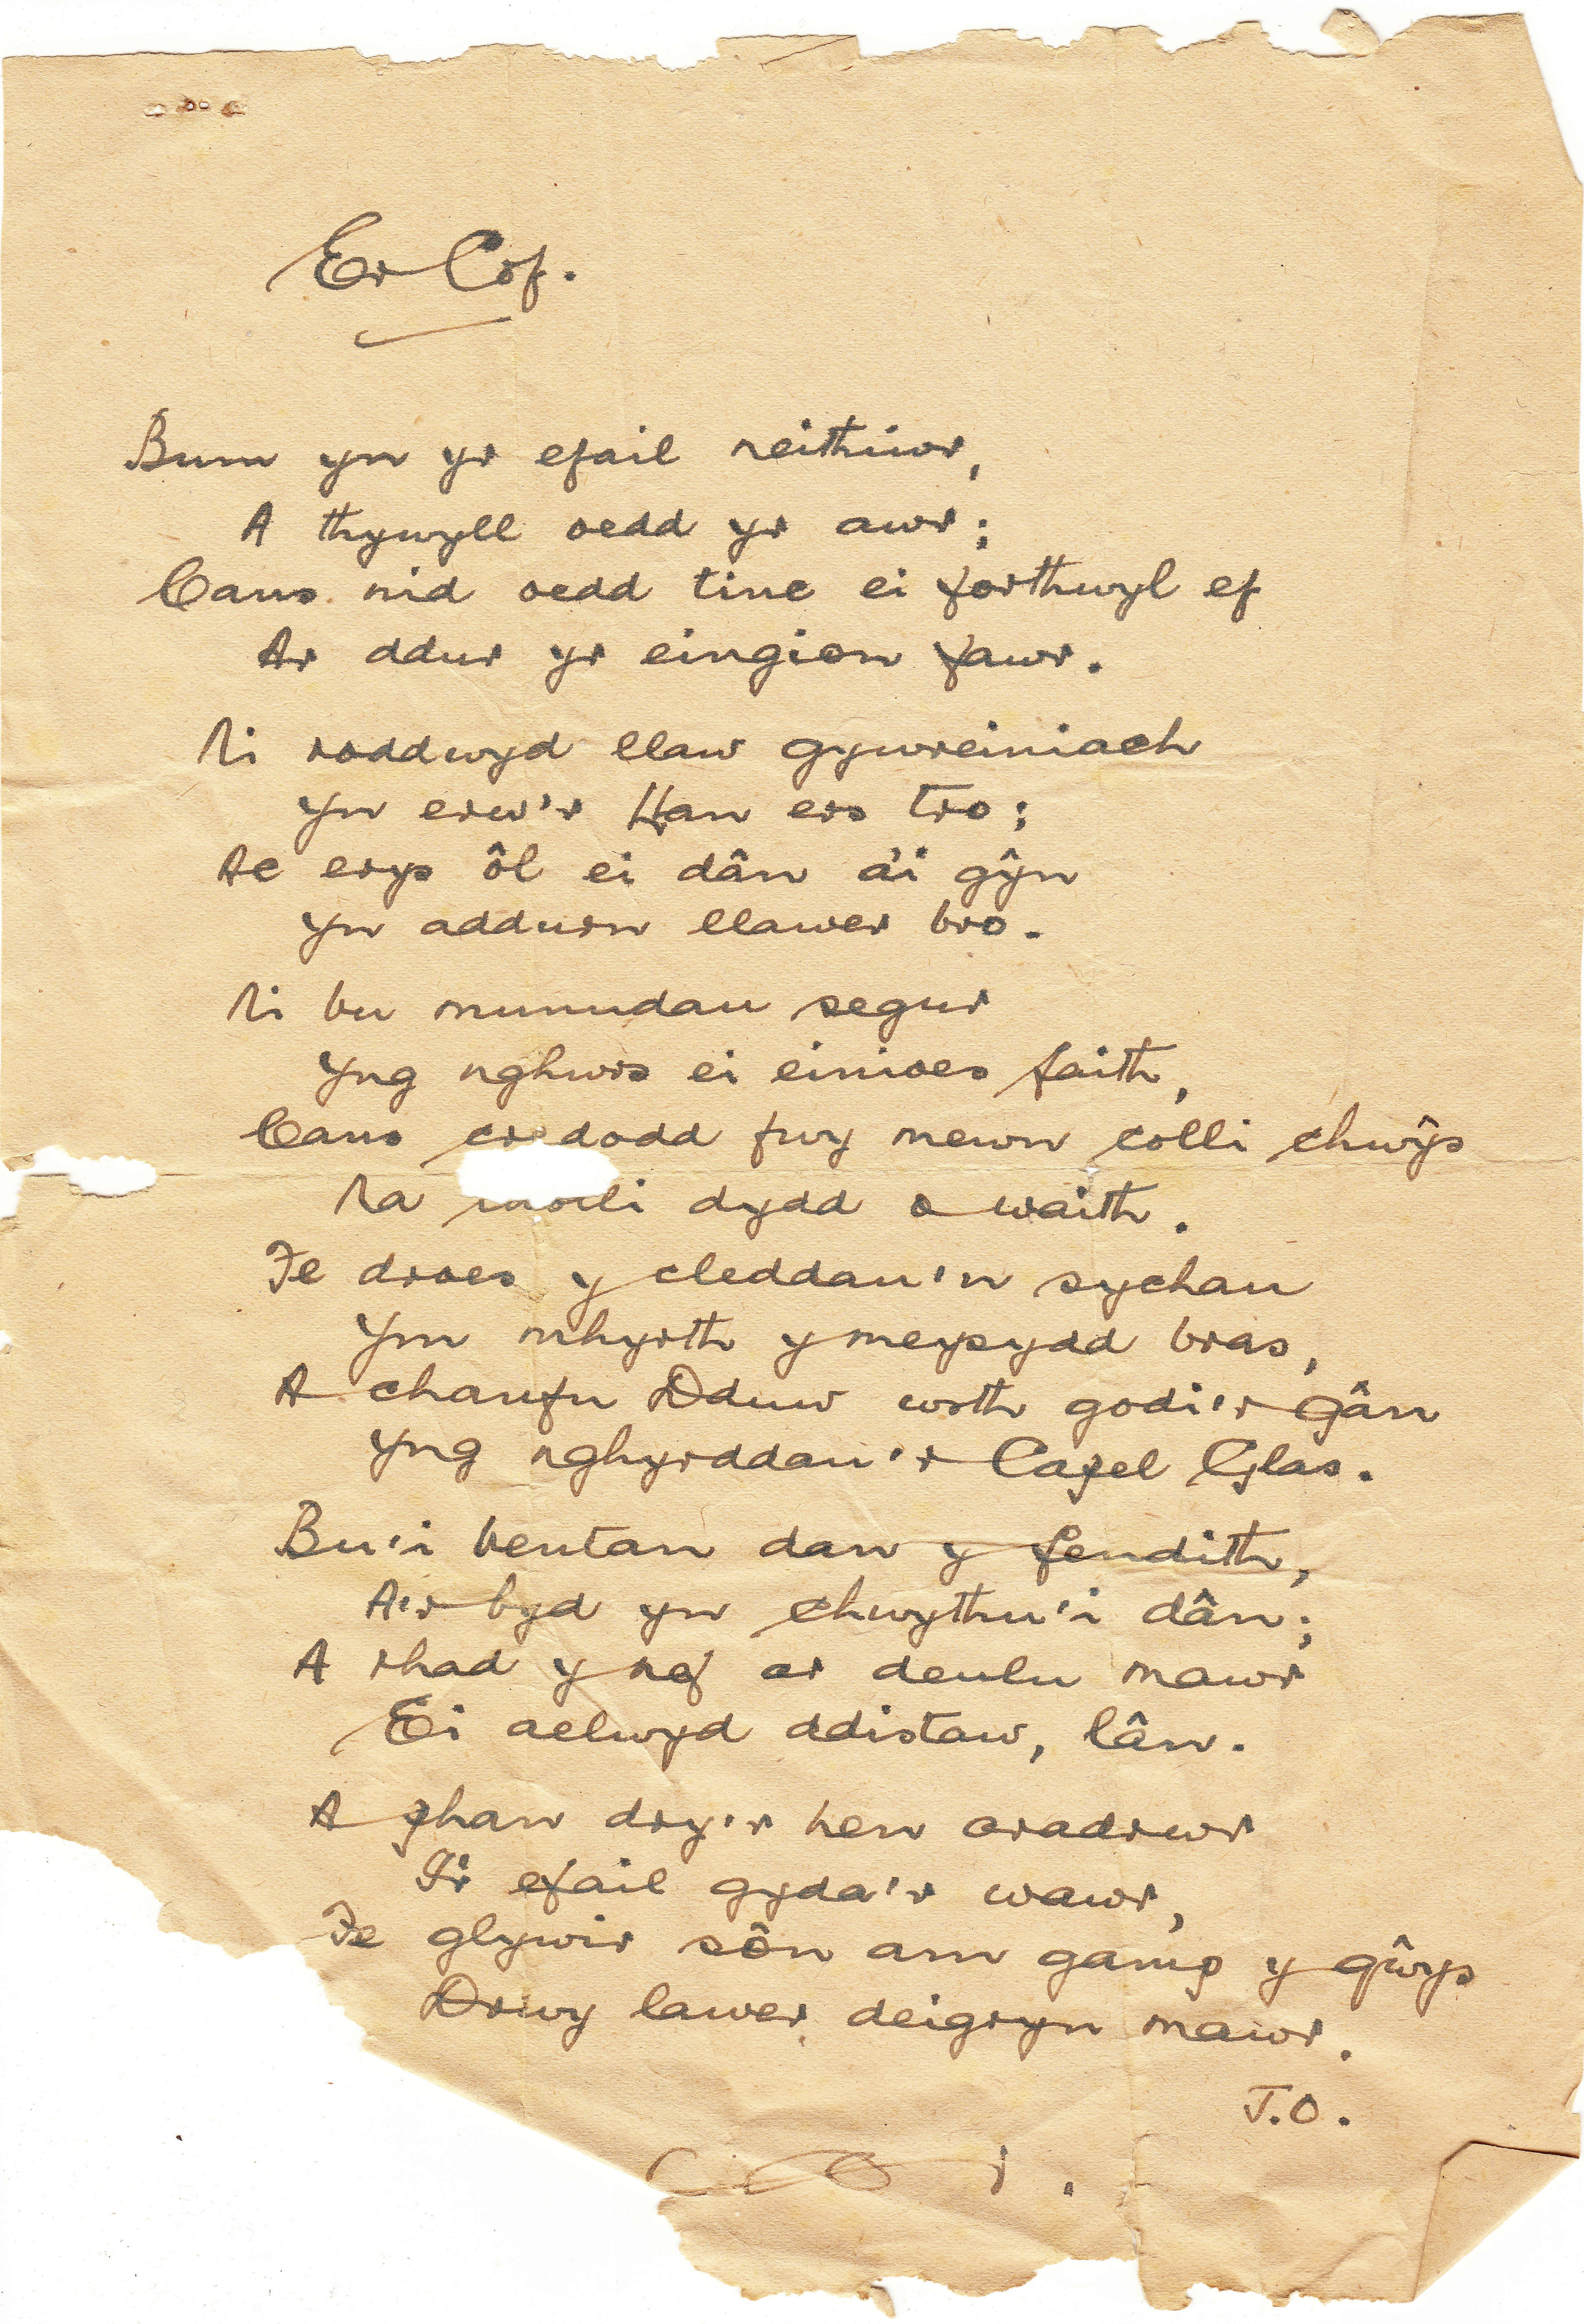 Er Cof.
Bum yn yr efail neithiwr,
A thywyll oedd yr awr;
Canys nid oedd tinc ei forthwyl ef
Ar ddur yr eingion fawr.
Ni roddwyd llaw gywreiniach
Yn erw'r Llan ers tro;
Ac erys ôl ei dân a'i gŷn
Yn addurn llawer bro.
Ni bu munudau segur
Yng nghwrs ei einioes faith,
Canys dodd fwy mewn colli chwŷs
Na dydd o waith.
Fe droes y cleddau'n sychau
Ym mhyrth y meysydd bras,
A chanfu Dduw wrth godi'r gân
Yng nghyrddau'r Capel Glas.
Bu'i bentan dan y fendith,
A'r byd yn chwythu'i dân;
A rhad y nef ar deulu mawr
Ei aelwyd ddistaw, lân.
A phan dry'r hen aradrwr
I'r efail gyda'r wawr,
Fe glywir sôn am gamp y gŵys
Drwy lawer deigryn mawr.
T.O.